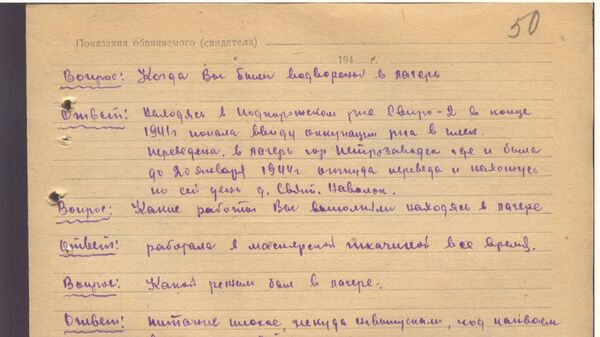 50
Показания обвиняемого (свидетеля)
194 г.
Вопрос: Когда Вы были водворены в лагерь
Ответ: Находясь в Подпорожском р-не Свирь-2 в конце
1941г попала ввиду оккупации р-на в плен.
Переведена в лагерь гор Петрозаводск где и была
до 20 января 1944г. откуда переведена и нахожусь
по сей день д. Свят. Наволок.
Вопрос: Какие работы Вы выполняли находясь в лагере.
Ответ: работала в мастерской ткачихой все время.
Вопрос: Какой режим был в лагере.
Ответ: питание плохое, никуда не выпускали, под конвоем